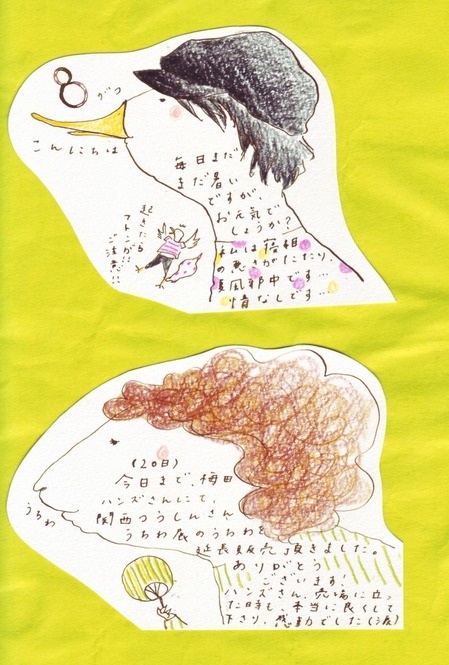 8がつ
こんにちは
毎日まだ
まだ暑い
ですが
お元気で
しょうか?
起きたら
フトンが!!
ご注意!!
私は寝相
の悪さがたたり、
夏風邪中です…
情なしです…
(20日)
今日まで、梅田
ハンズさんにて、
うちわ
関西つうしんさん、
うちわ展のうちわを
延長販売頂きました。
ありがとう
ございます!
ハンズさん、売場に立っ
た時も、本当に良くして
下さり、感動でした(涙)